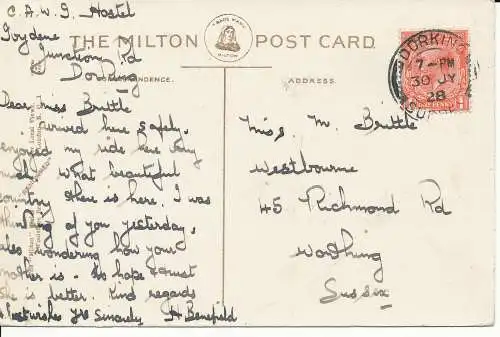 C.A.W.G. Hostel
Ivydene
Junction Rd
Dorking
THE MILTON POST CARD
TRADE MARK
MILTON
ADDRESS.
DORKING
7-PM
30 JY
28
ONE PENNY
Dear Miss Brittle
arrived here safely.
enjoyed my ride here very
much. What beautiful
country there is here. I was
thinking of you yesterday,
also wondering how your
mother is. We hope & trust
she is better. Kind regards
& Best wishes Yrs Sincerely H Benefield
Miss M. Brittle
Westbourne
45 Richmond Rd
Worthing
Sussex